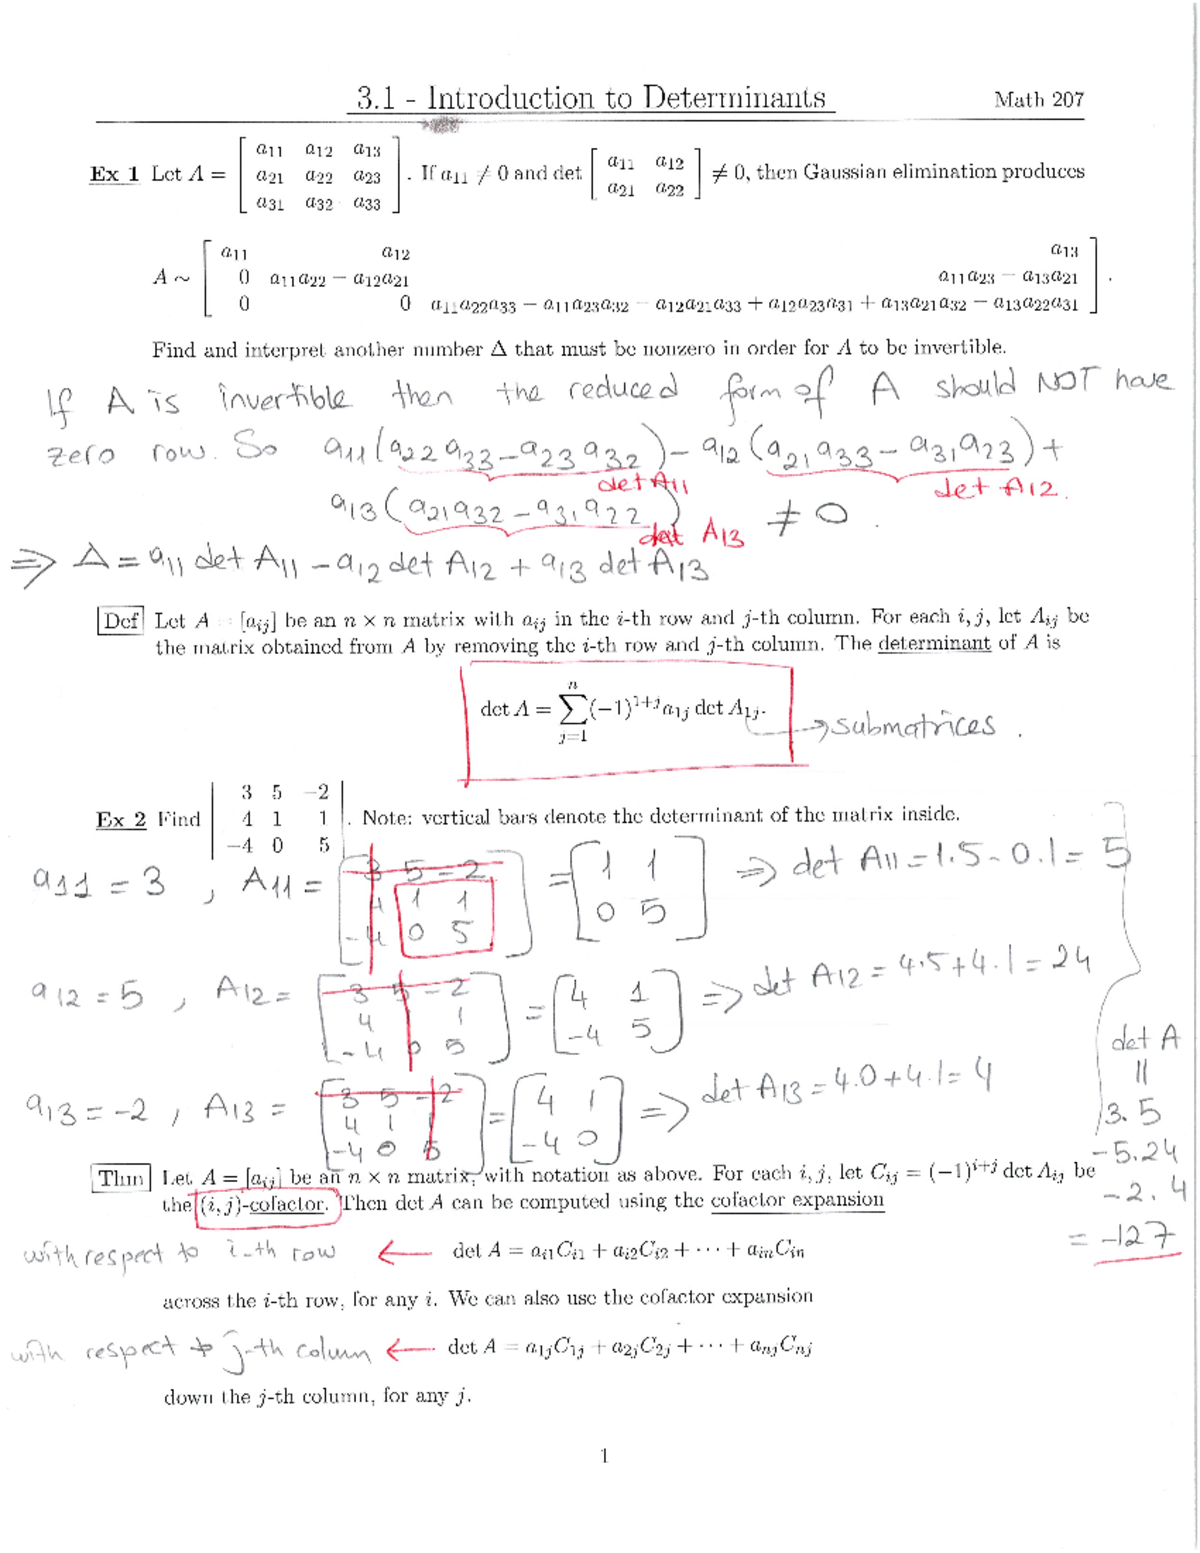 3.1 - Introduction to Determinants Math 207
Ex 1 Let A = [ a11 a12 a13
a21 a22 a23
a31 a32 a33 ] . If a11 ≠ 0 and det [ a11 a12
a21 a22 ] ≠ 0, then Gaussian elimination produces
A ~ [ a11 a12 a13
0 a11a22 − a12a21 a11a23 − a13a21
0 0 a11a22a33 − a11a23a32 − a12a21a33 + a12a23a31 + a13a21a32 − a13a22a31 ] .
Find and interpret another number Δ that must be nonzero in order for A to be invertible.
If A is invertible then the reduced form of A should NOT have
zero row. So a11(a22a33−a23a32) − a12(a21a33−a31a23)+
det A11 det A12.
a13(a21a32−a31a22) ≠ 0.
det A13
⇒ Δ = a11 det A11 − a12 det A12 + a13 det A13
Def Let A = [aij] be an n × n matrix with aij in the i-th row and j-th column. For each i, j, let Aij be
the matrix obtained from A by removing the i-th row and j-th column. The determinant of A is
det A = ∑_{j=1}^{n} (−1)^{1+j} a1j det A1j. → submatrices .
Ex 2 Find | 3 5 −2
4 1 1
−4 0 5 | . Note: vertical bars denote the determinant of the matrix inside.
a11 = 3 , A11 = [ 3 5 −2
4 1 1
−4 0 5 ] = [ 1 1
0 5 ] ⇒ det A11 = 1.5 − 0.1 = 5
a12 = 5 , A12 = [ 3 5 −2
4 1
−4 0 5 ] = [ 4 1
−4 5 ] ⇒ det A12 = 4.5+4.1 = 24
a13 = −2 , A13 = [ 3 5 −2
4 1 1
−4 0 5 ] = [ 4 1
−4 0 ] ⇒ det A13 = 4.0+4.1 = 4
det A
=
3.5
−5.24
−2.4
= −127
Thm Let A = [aij] be an n × n matrix, with notation as above. For each i, j, let Cij = (−1)^{i+j} det Aij be
the (i, j)-cofactor. Then det A can be computed using the cofactor expansion
with respect to i-th row ← det A = ai1Ci1 + ai2Ci2 + ··· + ainCin
across the i-th row, for any i. We can also use the cofactor expansion
with respect to j-th column ← det A = a1jC1j + a2jC2j + ··· + anjCnj
down the j-th column, for any j.
1